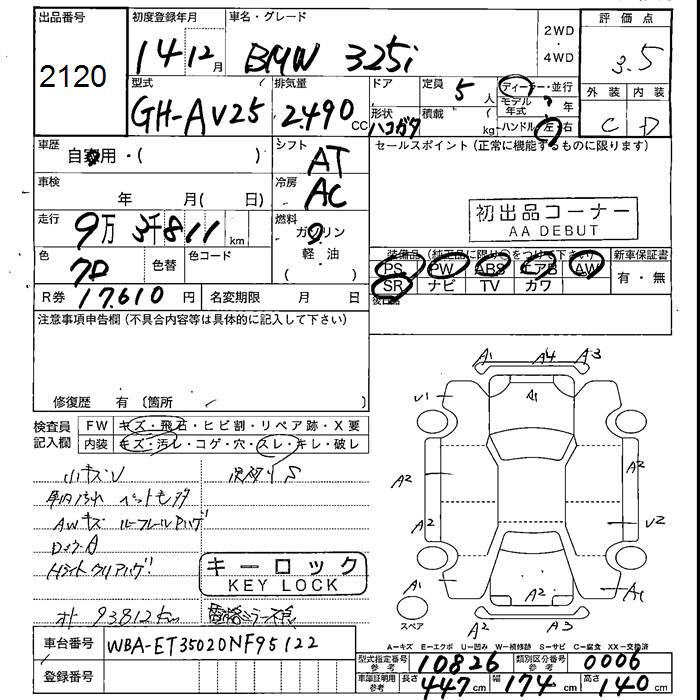 出品番号
2120
初度登録年月
14 12 月
車名・グレード
BMW 325i
2WD
・
4WD
評価点
3.5
型式
GH-AV25
排気量
2490 cc
ドア
形状
ハコガタ
定員
5 人
積載
kg
ディーラー・並行
モデル年式 年
ハンドル 左・右
外装 内装
C D
車歴
自家用・( )
シフト
AT
セールスポイント (正常に機能するものに限ります)
車検
年 月( 日)
冷房
AC
初出品コーナー
AA DEBUT
走行
9万 3千811 km
燃料
ガソリン
軽・油
( )
色
色替
色コード
装備品 (純正品に限り○をつけて下さい)
新車保証書
PS PW ABS エアB AW
有・無
SR ナビ TV カワ
後日品
R券 17.610 円
名変期限 月 日
注意事項申告欄 (不具合内容等は具体的に記入して下さい)
修復歴 有 〔箇所 〕
検査員
記入欄
FW キズ・飛石・ヒビ割・リペア跡・X要
内装 キズ・汚レ・コゲ・穴・スレ・キレ・破レ
小キズU
AWキズ ルーフレールハゲ
Hライトクリアハゲ
キーロック
KEY LOCK
オト 93812km
車台番号 WBA-ET35020NF95122
登録番号
A1 A4 A3
U1 A1
A2 A2
A2 U2
A1 A2 A1
スペア
A2 A3
A−キズ E−エクボ U−凹み W−補修跡 S−サビ C−腐食 XX−交換済
型式指定番号 参考 10826
類別区分番号 参考 0006
車庫証明用 参考 長さ 447 cm 幅 174 cm 高さ 140 cm